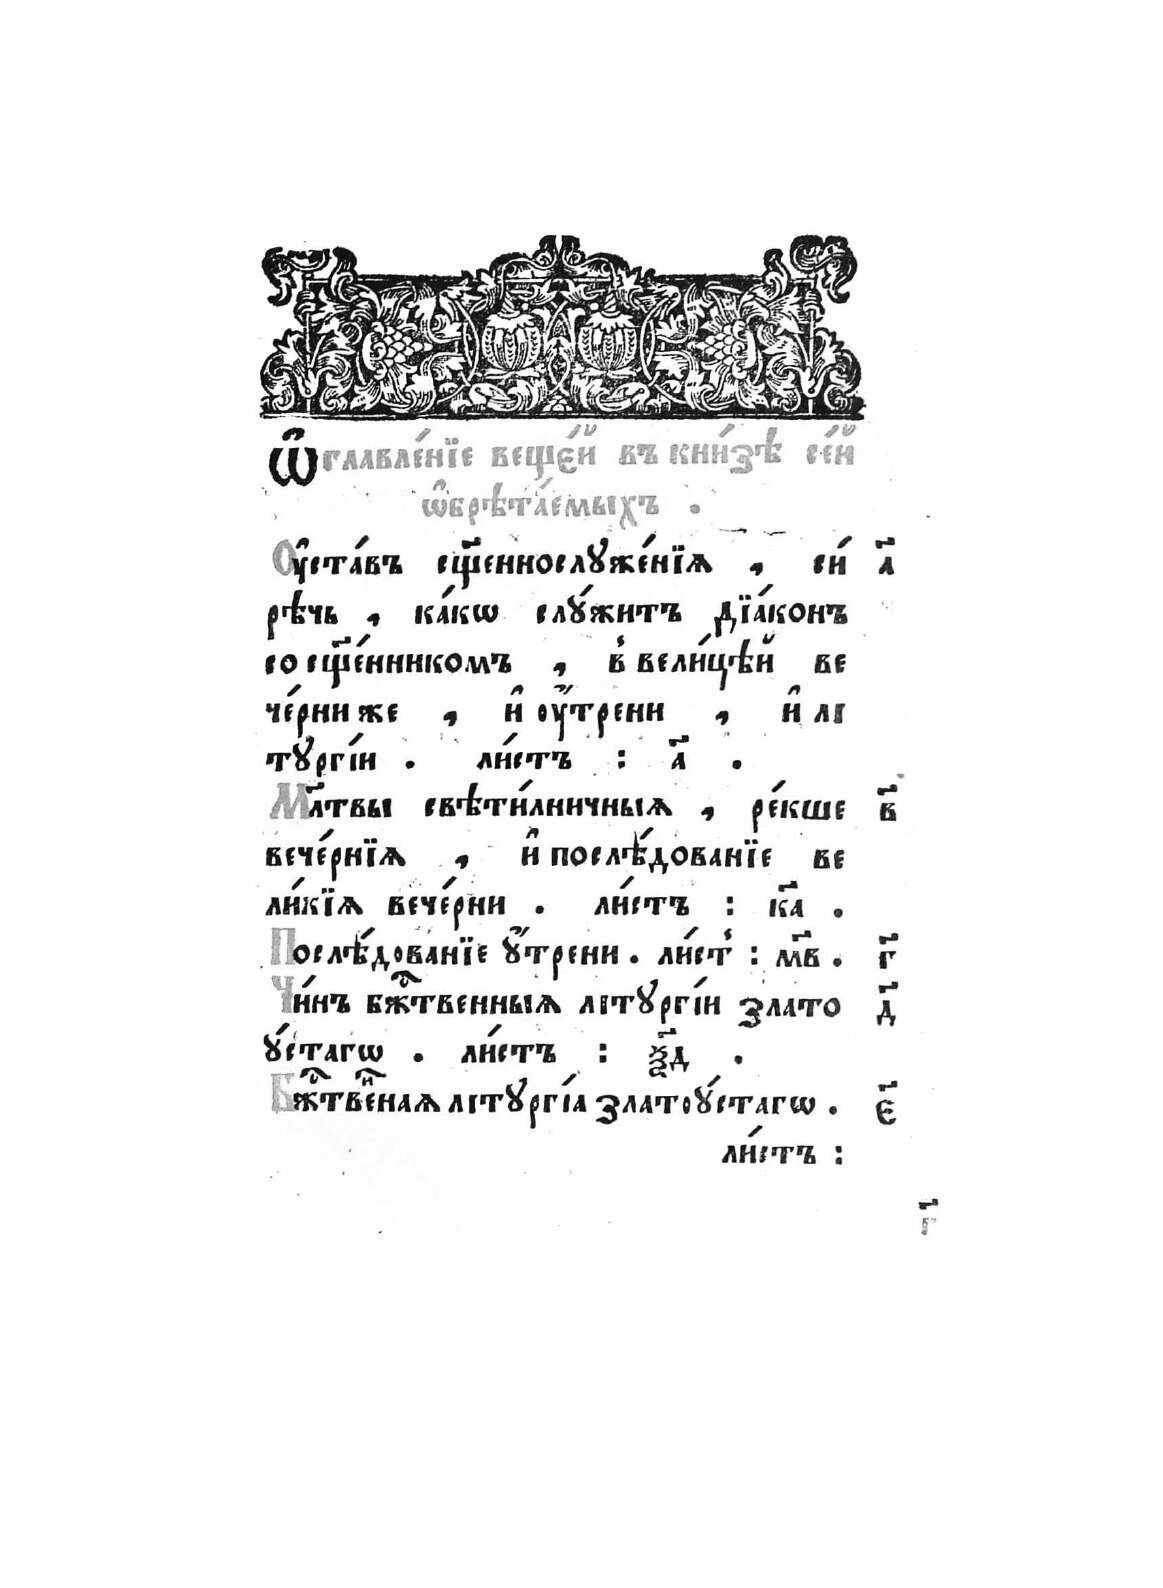 Ѡ҆главле́нїе веще́й въ кни́зѣ се́й
ѡ҆брѣта́емыхъ .
Оу҆ста́въ сщ҃еннослꙋже́нїѧ , си́ а҃
рѣчь , ка́кѡ слꙋ́житъ дїа́конъ
со сщ҃е́нникомъ , в̾ вели́цѣй ве
че́рни же , и҆ оу҆́трени , и҆ лі
тꙋргі́и . ли́стъ : а҃ .
Мл҃твы свѣти́лничныѧ , ре́кше в҃
вече́рнїѧ , и҆ послѣ́дованїе ве
ли́кїѧ вече́рни . ли́стъ : к҃а .
Послѣ́дованїе ꙋ҆́трени . ли́ст̾ : м҃в . г҃
Чи́нъ бж҃ⷭ҇твенныѧ літꙋргі́и злато д҃
ꙋ́стагѡ . ли́стъ : ѯ҃д .
Бжⷭ҇твеⷩ҇наѧ літꙋргі́а златоꙋ́стагѡ . є҃
ли́стъ :
г҃